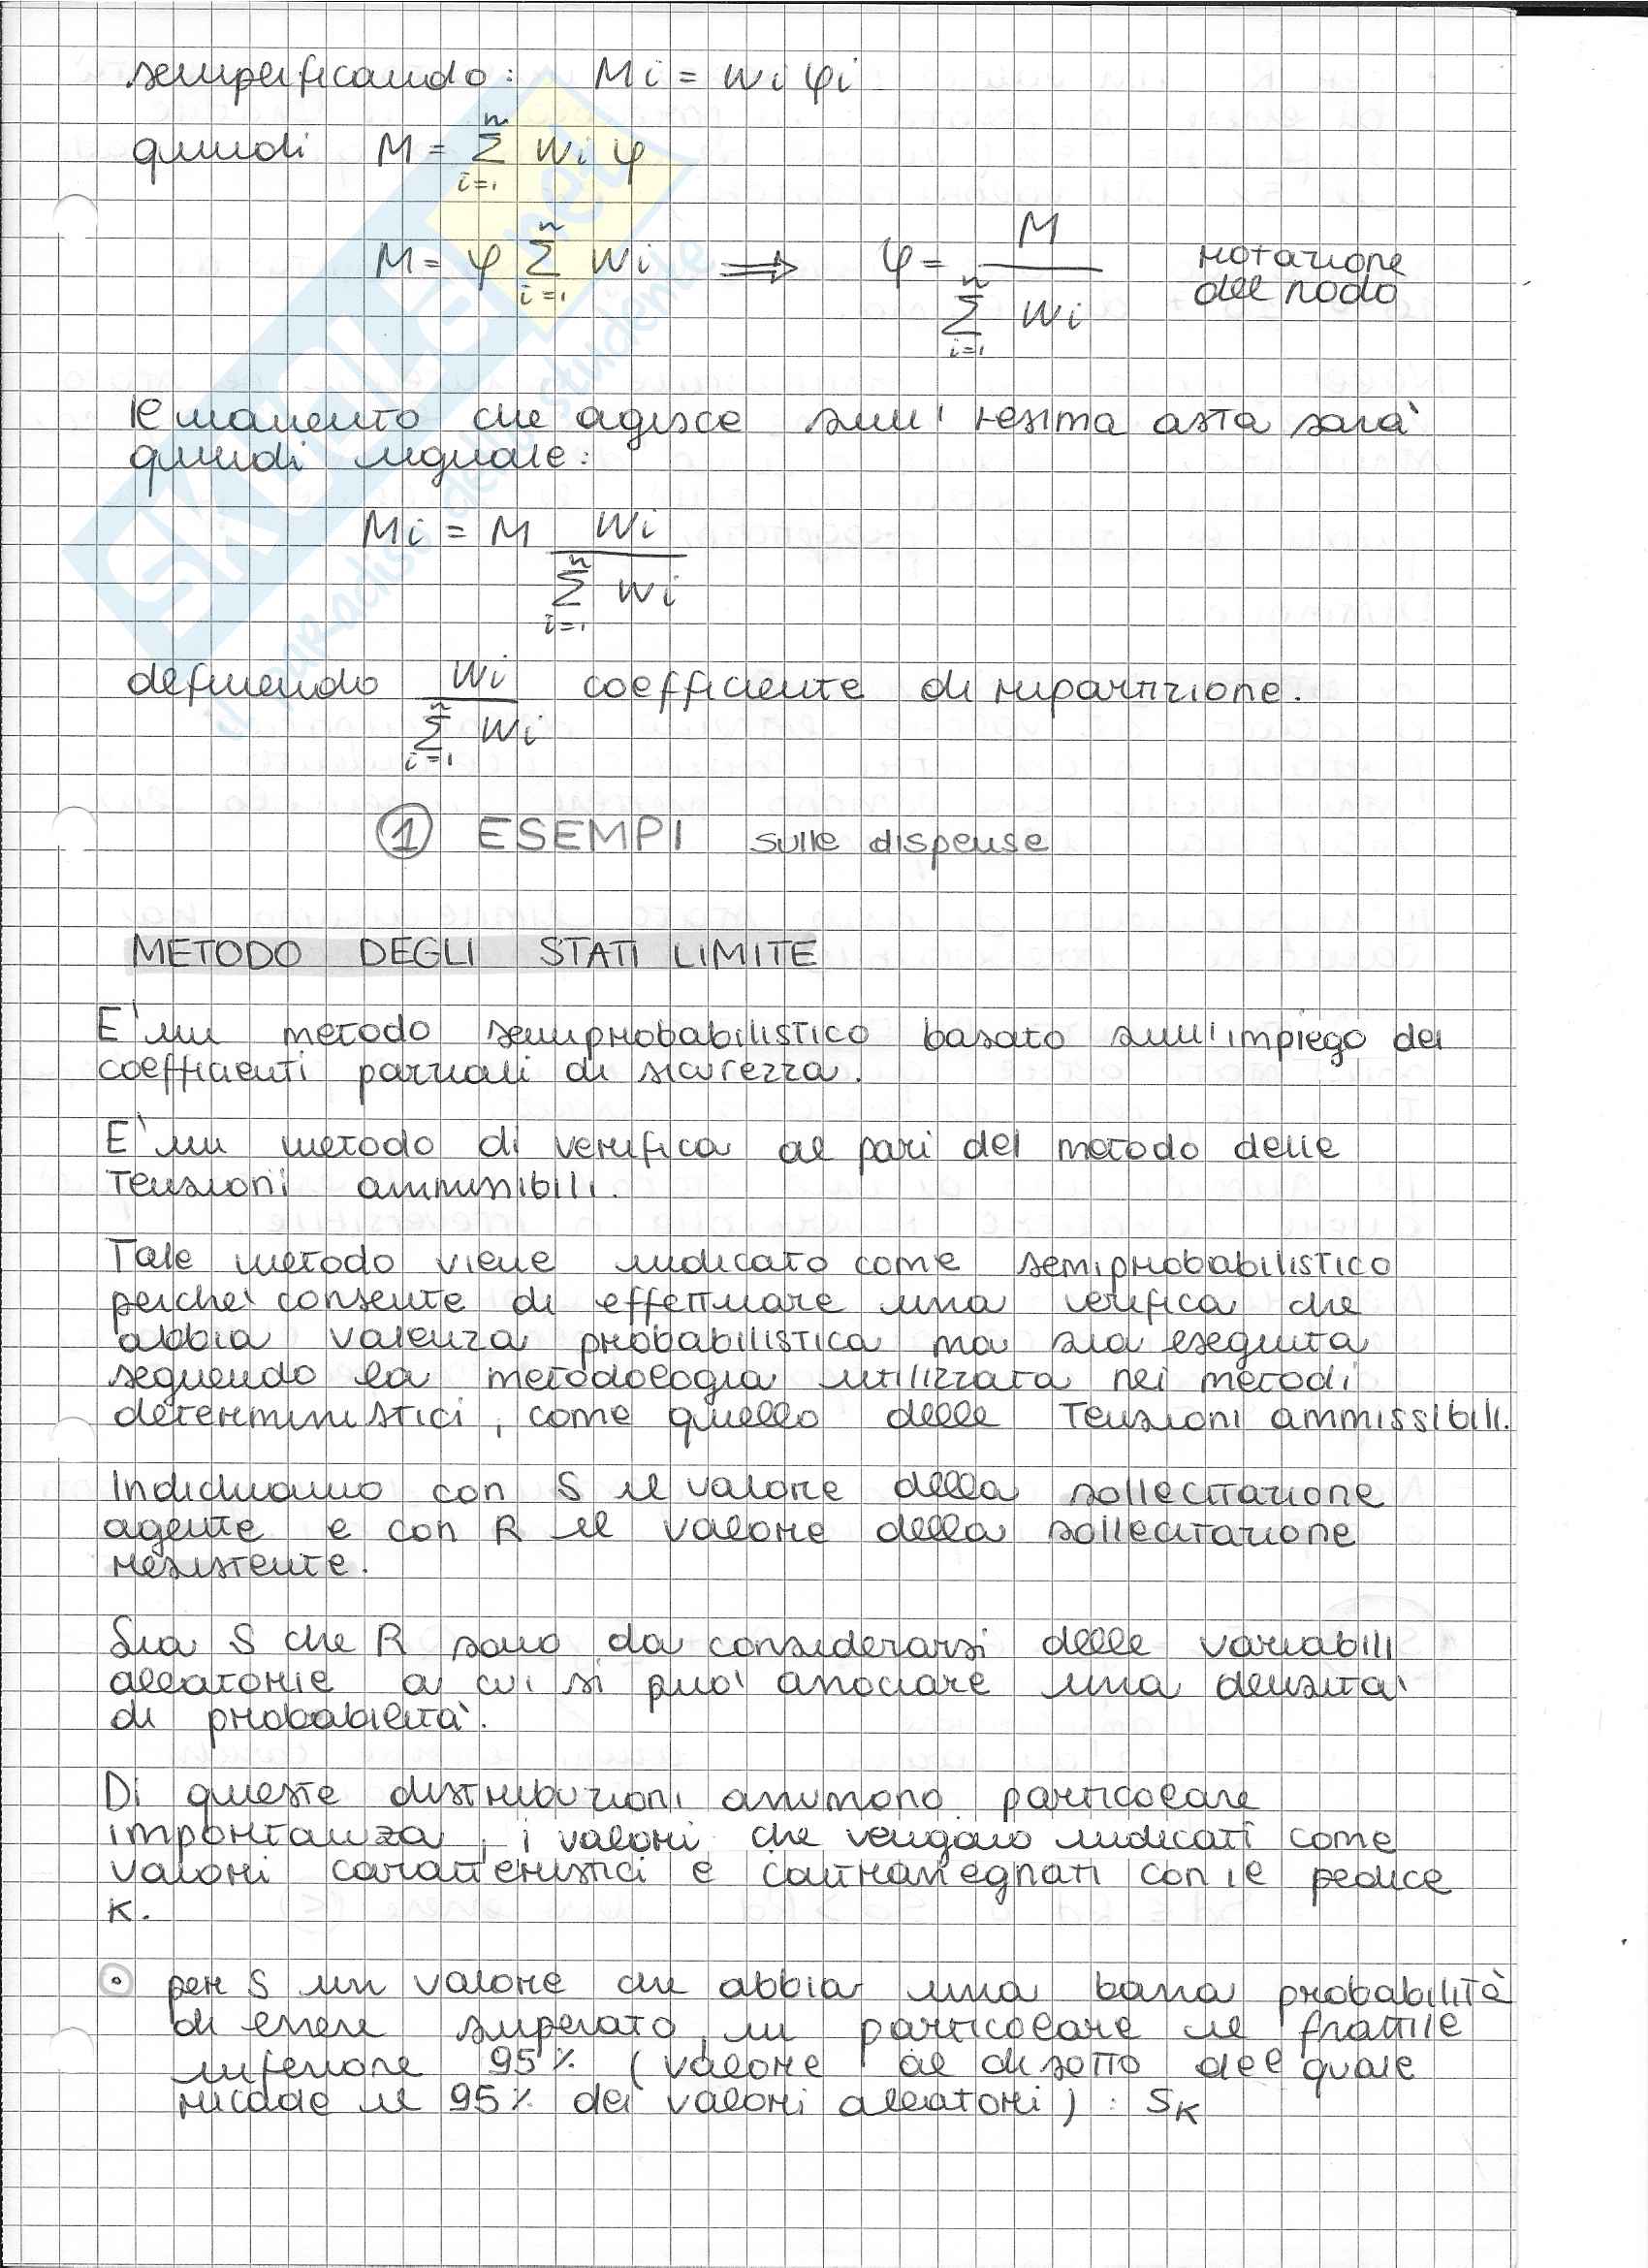 semplificando: Mi = Wi φi
quindi M = Σ Wi φ
n
i=1
M = φ Σ Wi ⟹ φ = M / Σ Wi rotazione
n
i=1
n
i=1
del nodo
Il momento che agisce sull' iesima asta sarà
quindi uguale:
Mi = M Wi / Σ Wi
n
i=1
definendo Wi / Σ Wi coefficiente di ripartizione.
n
i=1
① ESEMPI sulle dispense
METODO DEGLI STATI LIMITE
E' un metodo semiprobabilistico basato sull'impiego dei
coefficienti parziali di sicurezza.
E' un metodo di verifica al pari del metodo delle
Tensioni ammissibili.
Tale metodo viene indicato come semiprobabilistico
perche' consente di effettuare una verifica che
abbia valenza probabilistica ma sia eseguita
seguendo la metodologia utilizzata nei metodi
deterministici, come quello delle Tensioni ammissibili.
Indichiamo con S il valore della sollecitazione
agente e con R il valore della sollecitazione
resistente.
Sia S che R sono da considerarsi delle variabili
aleatorie a cui si puo' associare una densita'
di probabilita'.
Di queste distribuzioni assumono particolare
importanza, i valori che vengono indicati come
valori caratteristici e contrassegnati con il pedice
K.
⊙ per S un valore che abbia una bassa probabilità
di essere superato, in particolare il frattile
inferiore 95% (valore al di sotto del quale
ricade il 95% dei valori aleatori) : SK
SKUOLA.net
il paradiso dello studente